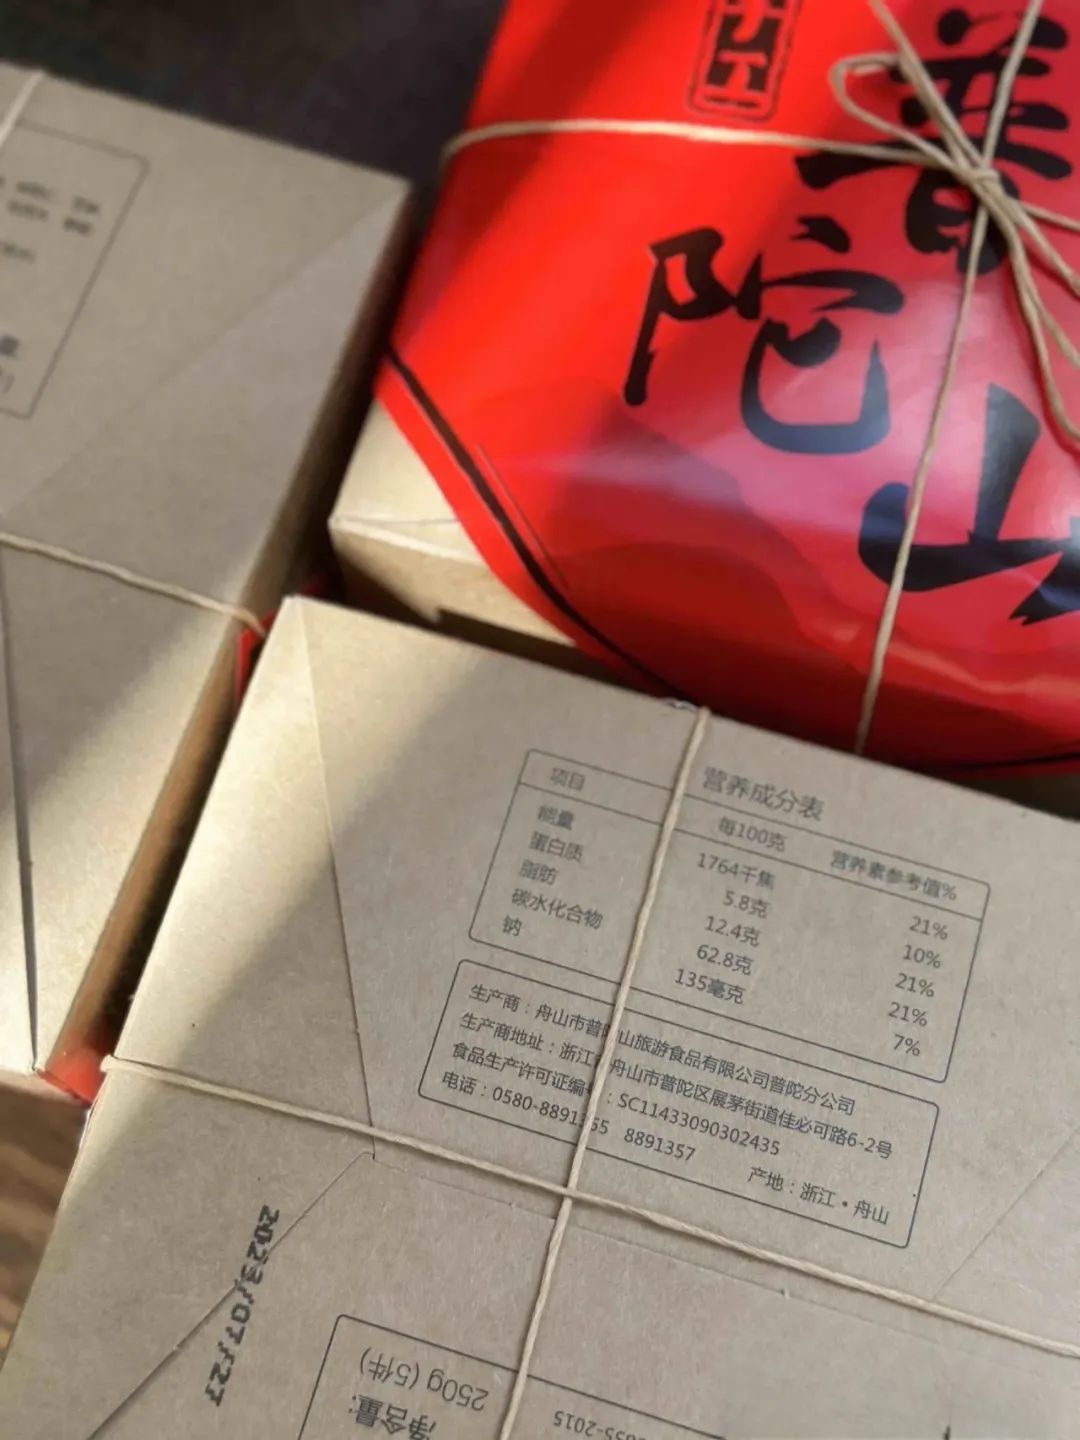 手工
普
陀
山
营养成分表
项目 每100克 营养素参考值%
能量 1764千焦 21%
蛋白质 5.8克 10%
脂肪 12.4克 21%
碳水化合物 62.8克 21%
钠 135毫克 7%
生产商：舟山市普陀山旅游食品有限公司普陀分公司
生产商地址：浙江 舟山市普陀区展茅街道佳必可路6-2号
食品生产许可证编 ：SC11433090302435
电话：0580-8891355 8891357
产地：浙江·舟山
2023/07/27
净含量：
250g (5件)